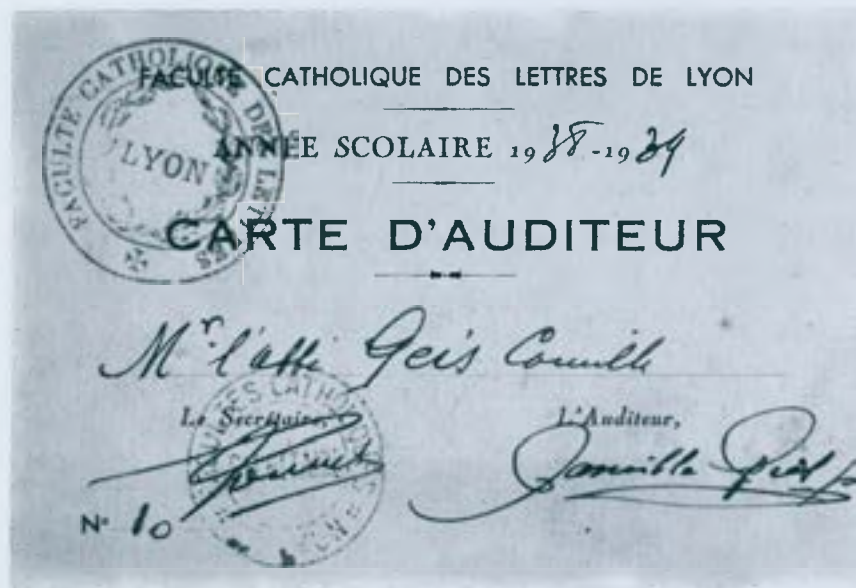 FACULTÉ CATHOLIQUE DES LETTRES DE LYON
FACULTE CATHOLIQUE DES LETTRES
LYON
ANNÉE SCOLAIRE 1938-1939
CARTE D'AUDITEUR
Mr. l'abbé Geis Camille
Le Secrétaire,
L'Auditeur,
Camille Geis
N° 10